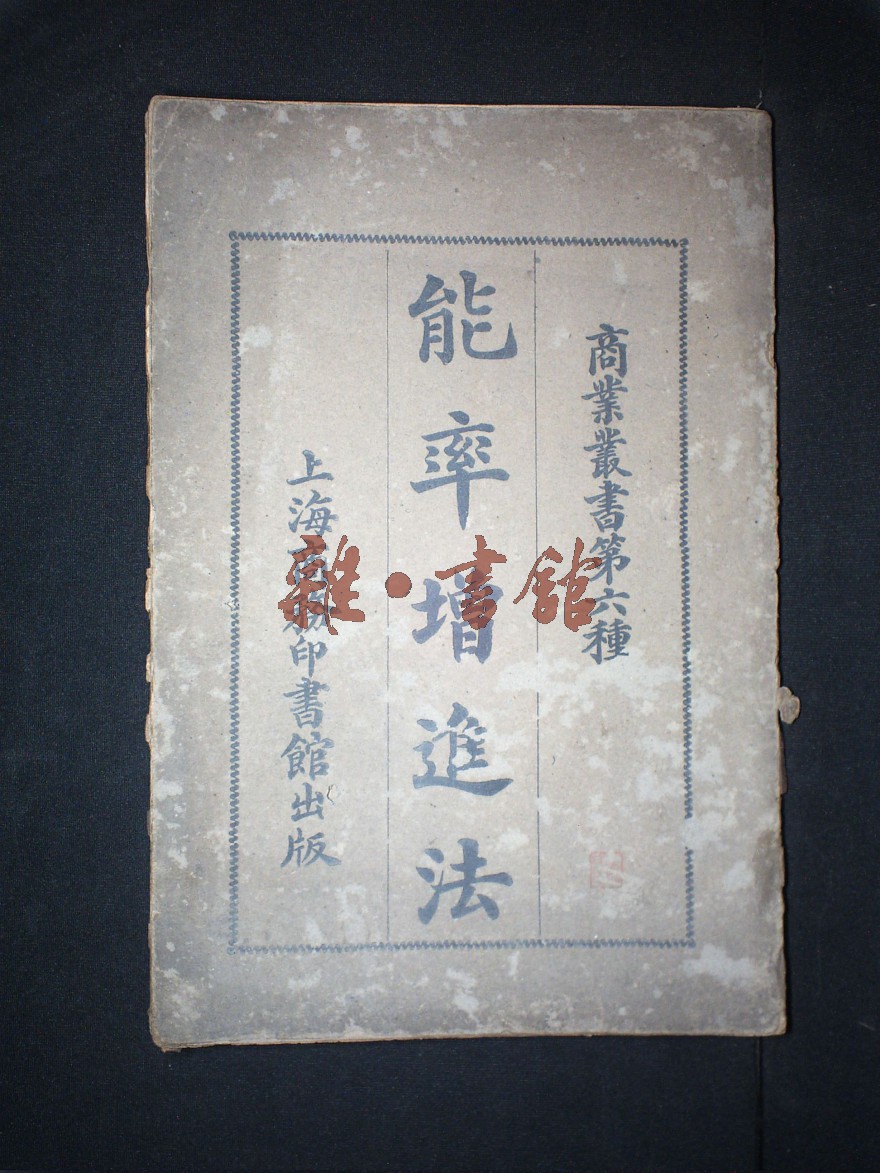 商業叢書第六種
能率增進法
上海商務印書館出版
雜·書館